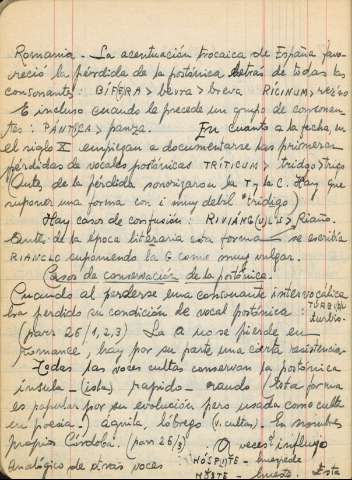 Romania. - La acentuación trocaica de España favo-
reció la pérdida de la postónica detrás de todas las
consonantes: BÍFERA > bevra > breva RÍCINUM > rezno
E incluso cuando la precede un grupo de consonan-
tes: PÁNTICA > panza. En cuanto a la fecha, en
el siglo X empiezan a documentarse las primeras
pérdidas de vocales postónicas TRÍTICUM > tridgo > trigo
(Antes de la pérdida sonorizaron la T y la C. Hay que
suponer una forma con i muy débil *tridigo)
Hay casos de confusión: > Riaño.
Antes de la época literaria esta forma se escribía
RIANGLO suponiendo la G como muy vulgar.
Casos de conservación de la postónica.
Cuando al perderse una consonante intervocálica
ha perdido su condición de vocal postónica: TURBIDU
turbio.
(pars 26/1,2,3) La a no se pierde en
romance, hay por su parte una cierta resistencia.
Todas las voces cultas conservan la postónica
ínsula - (isla) rápido - raudo (Esta forma
es popular por su evolución pero usada como culta
en poesía) águila, lóbrego (v. cultas). En nombres
propios Córdoba. (pars 26/3) A veces influjo
analógico de otras voces HÓSPITE - huespede
HOSTE - hueste. Esta